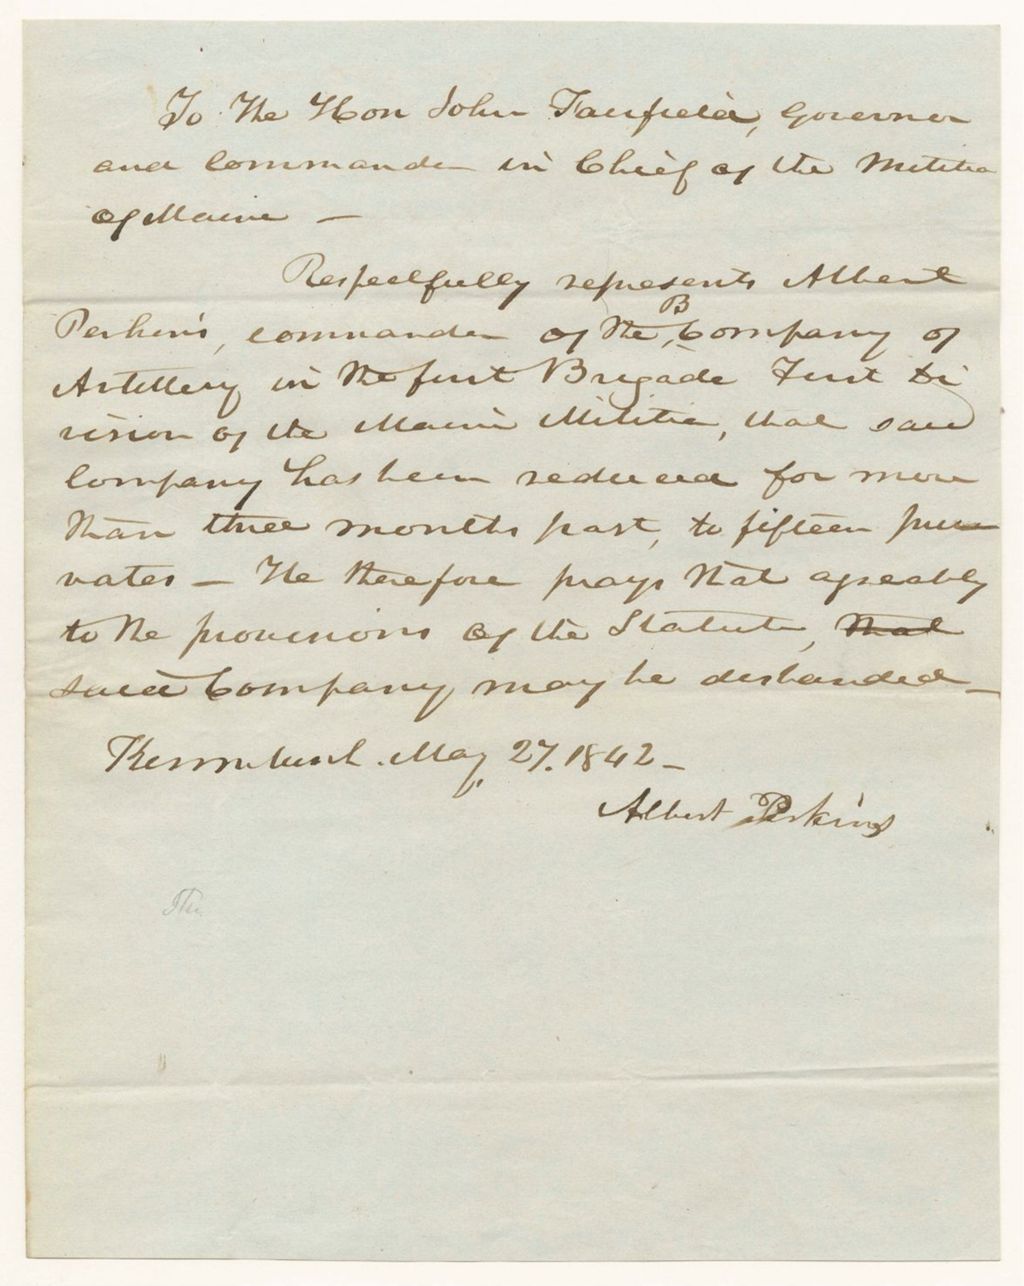 To The Hon John Fairfield, Governor
and Commander in Chief of the Militia
of Maine —
Respectfully represents Albert
Perkins, commander of the B Company of
Artillery in the first Brigade First Di
vision of the Maine Militia, that said
Company has been reduced for more
than three months past, to fifteen pri
vates — He therefore prays that agreeably
to the provisions of the Statute, that
said Company may be disbanded —
Kennebunk. May 27. 1842 —
Albert Perkins
The